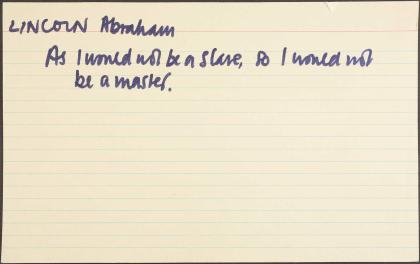 LINCOLN Abraham
As I would not be a slave, so I would not
be a master.